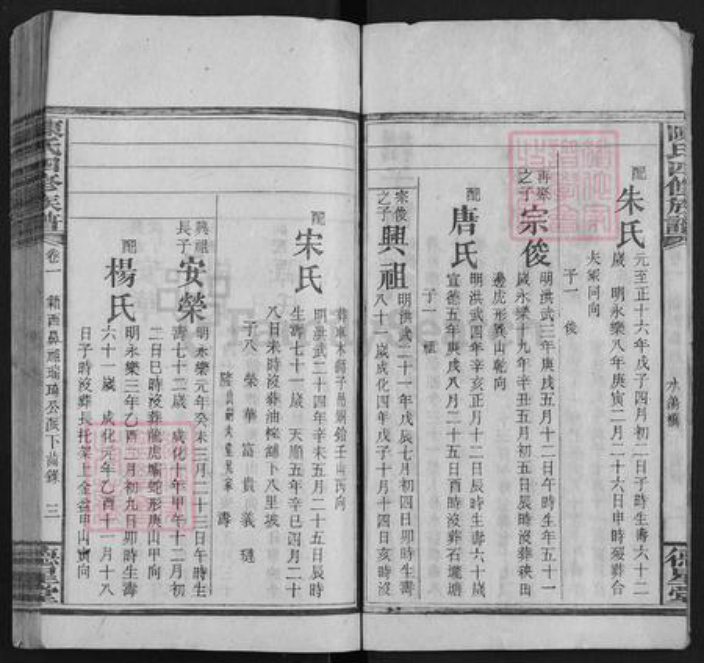 陳氏四修族譜
配
朱氏
元至正十六年戊子四月初二日子時生壽六十二
歲 明永樂八年庚寅二月二十六日申時歿葬合
夫塋同向
子一 俊
再聚之子
宗俊
明洪武三年庚戌五月十二日午時生年五十一
歲永樂十九年辛丑五月初五日辰時沒葬秧田
邊虎形艮山乾向
配
唐氏
明洪武四年辛亥正月十二日辰時生壽六十歲
宣德五年庚戌八月二十五日酉時沒葬石壠塘
子一
宗俊之子
興祖
明洪武二十一年戊辰七月初四日卯時生壽
八十一歲成化四年戊子十月十四日亥時沒
德星堂
陳氏四修族譜
卷一
三
壬山丙向
配
宋氏
明洪武二十四年辛未五月二十五日辰時
生壽七十一歲 天順五年辛巳四月二十
八日未時沒葬油榨舖下八里坡
子八 榮 華 富 貴 義 璉
壽
興祖長子
安榮
明永樂元年癸未三月二十三日午時生
壽七十二歲 成化十年甲午十二月初
二日巳時沒葬龍虎壩蛇形庚山甲向
配
楊氏
明永樂三年乙酉二月初九日卯時生壽
六十一歲 成化元年乙酉十一月十八
日子時沒葬長托架上金盆申山寅向
德星堂